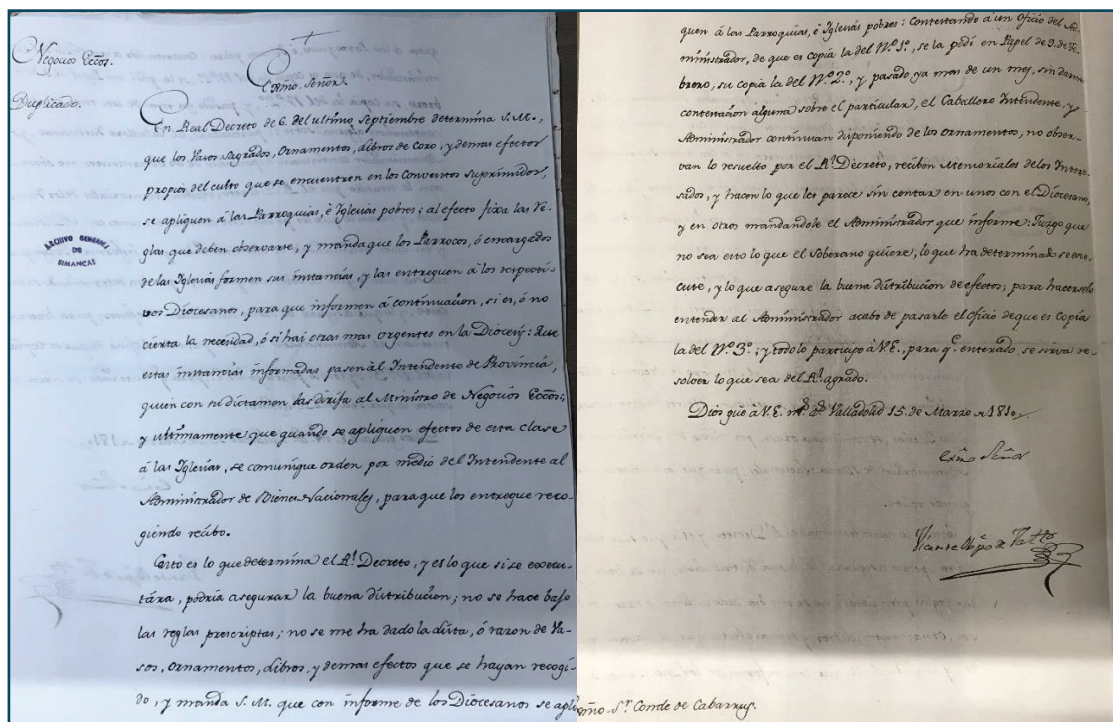 Negocios Eccõs.
Duplicado.
Exmõ. Señor.
En Real Decreto de 6. del ultimo Septiembre determina S. M.,
que los Vasos Sagrados, Ornamentos, Libros de Coro, y demas efectos
propios del culto que se encuentren en los Conventos Suprimidos,
se apliquen á las Parroquias, é Iglesias pobres; al efecto fixa las Re-
glas que deben observarse, y manda que los Parrocos, ó encargados
de las Iglesias formen sus instancias, y las entreguen á los respecti-
vos Diocesanos, para que informen á continuacion, si es, ó no
cierta la necesidad, ó si hai otras mas urgentes en la Diocesis: Que
estas instancias informadas pasen al Intendente de Provincia,
quien con su dictamen las dirija al Ministro de Negocios Eccõs;
y ultimamente que quando se apliquen efectos de esta clase
á las Iglesias, se comunique orden por medio del Intendente al
Administrador de Bienes Nacionales, para que los entregue reco-
giendo recibo.
Esto es lo que determina el Rl. Decreto, y es lo que si se execu-
tára, podria asegurar la buena distribucion; no se hace bajo
las reglas prescriptas; no se me ha dado la lista, ó razon de Va-
sos, Ornamentos, Libros, y demas efectos que se hayan recogi-
do, y manda S. M. que con informe de los Diocesanos se apli
ARCHIVO GENERAL
DE
SIMANCAS
quen á las Parroquias, é Iglesias pobres: Contestando á un Oficio del Ad-
ministrador, de que es copia la del Nº. 1º., se la pedi en Papel de 9. de Fe-
brero, su copia la del Nº. 2º., y pasado ya mas de un mes, sin darme
contestacion alguna sobre el particular, el Caballero Intendente, y
Administrador continuan disponiendo de los ornamentos, no obser-
van lo resuelto por el Rl. Decreto, reciben Memoriales de los Intere-
sados, y hacen lo que les parece sin contar en unos con el Diocesano,
y en otros mandandole el Administrador que informe: Juzgo que
no sea esto lo que el Soberano quiere, lo que ha determinado se exe-
cute, y lo que asegure la buena distribucion de efectos; para hacerselo
entender al Administrador acabo de pasarle el oficio de que es Copia
la del Nº. 3º.; y todo lo participo á V. E., para q.e enterado, se sirva re-
solver lo que sea del Rl. agrado.
Dios gũe á V. E. ms. as. Valladolid 15 de Marzo de 1810
Exmõ Señor
Vicente Obpo de Vallid
Exmo. Sr. Conde de Cabarrus.